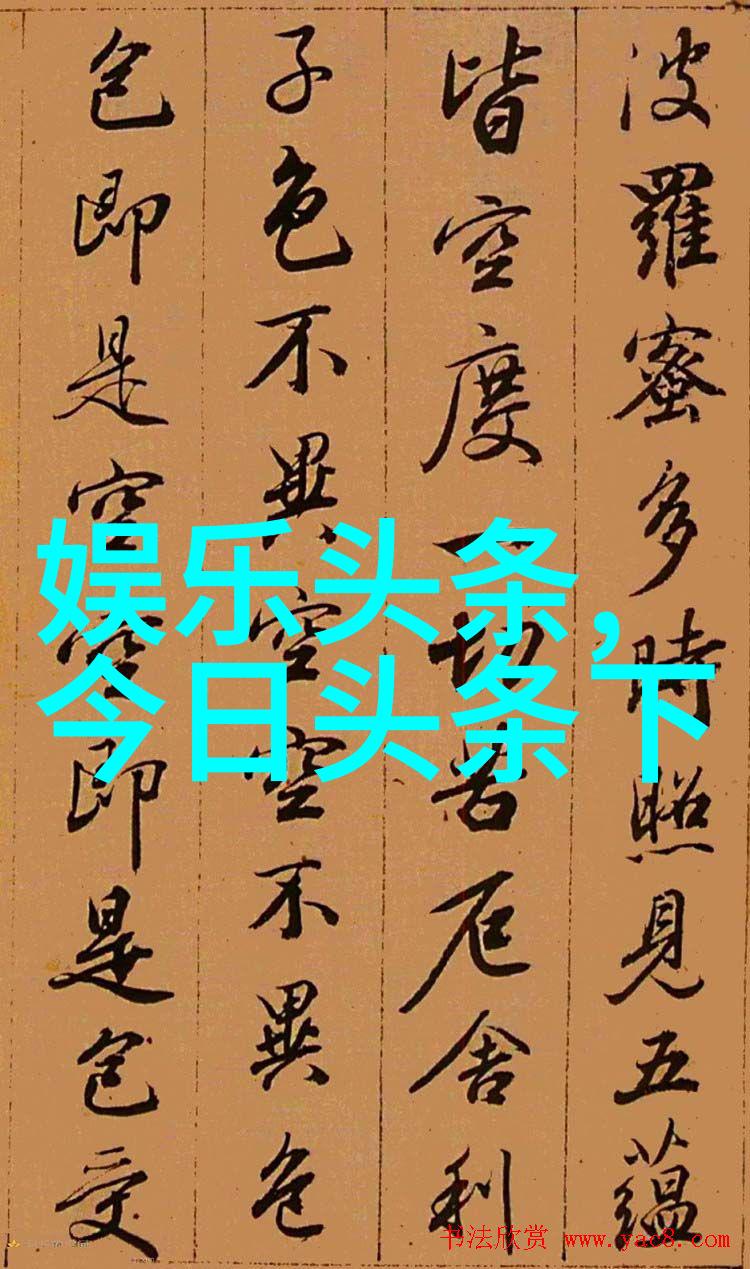 波羅蜜多時照見五蘊
皆空度一切苦厄舍利
子色不異空空不異色
色即是空空即是色受
娱乐头条,
今日头条下
书法欣赏 www.yac8.com